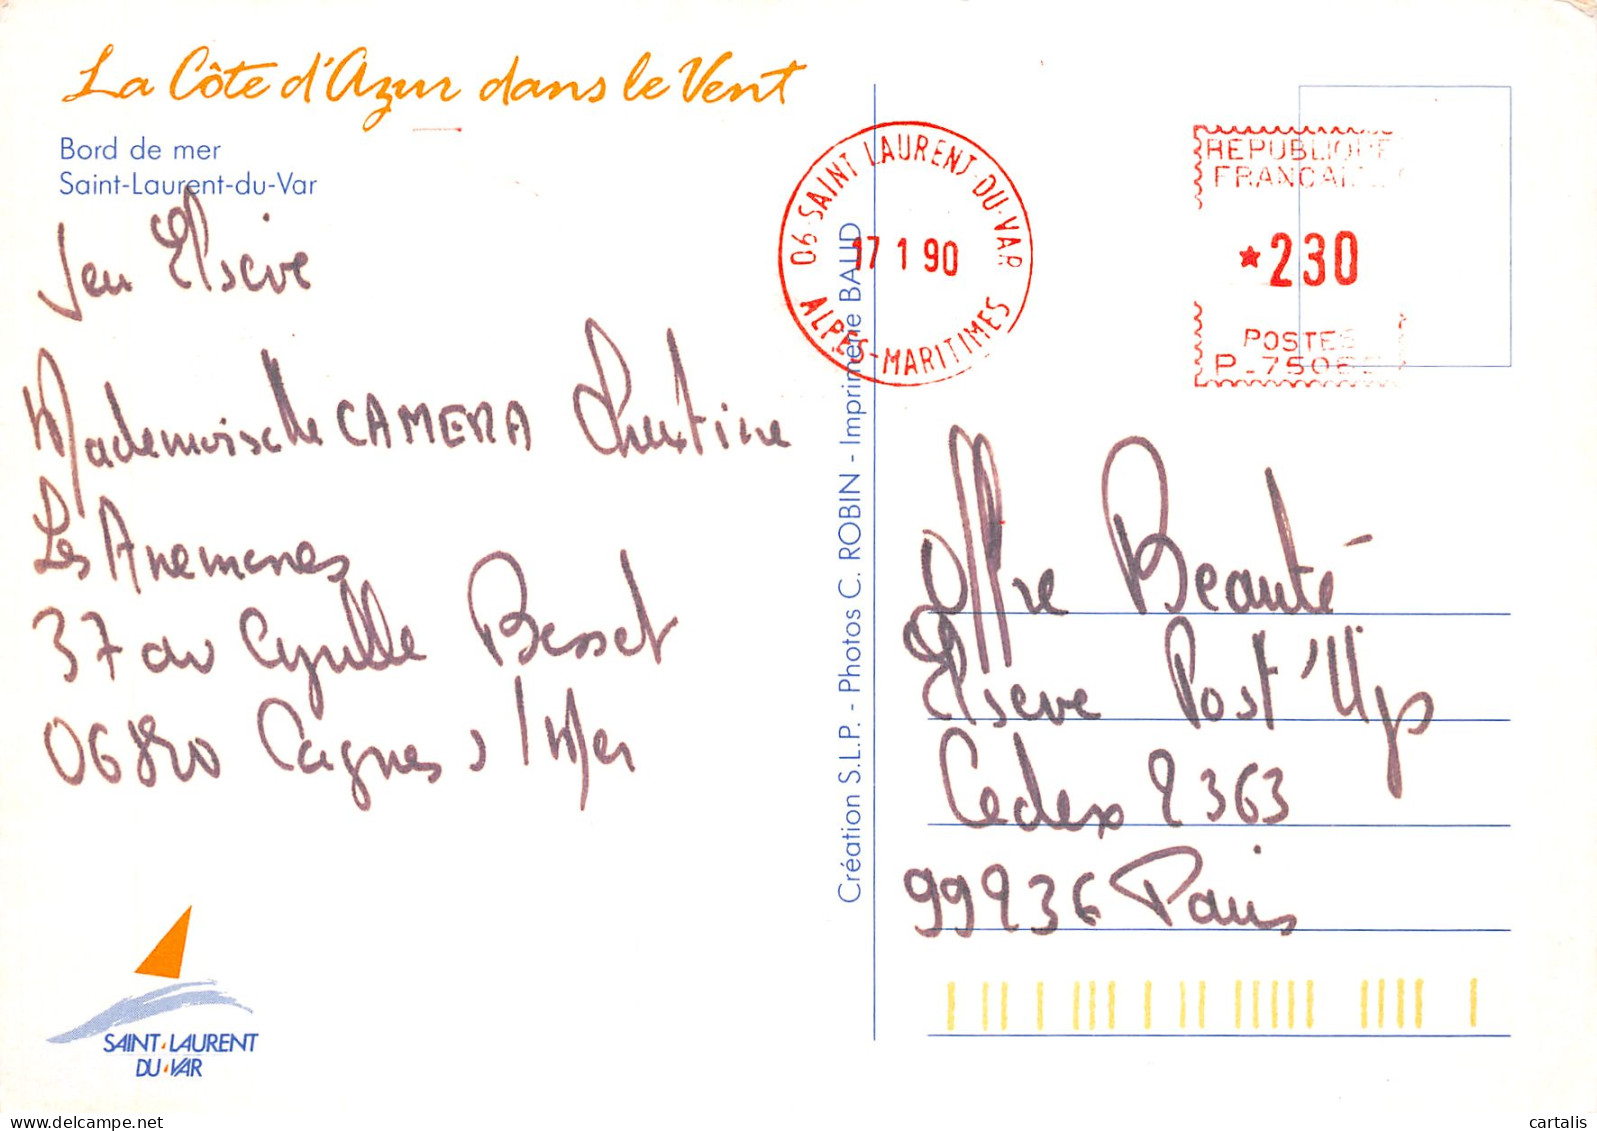 La Côte d'Azur dans le Vent
Bord de mer
Saint-Laurent-du-Var
Jeu Elsève
Mademoiselle CAMERA Christine
Les Anemones
37 av Cyrille Besset
06800 Cagnes s/Mer
SAINT-LAURENT
DU-VAR
Création S.L.P. - Photos C. ROBIN - Imprimerie BAUD
06 SAINT LAURENT-DU-VAR
17 1 90
ALPES-MARITIMES
REPUBLIQUE
FRANCAISE
*230
POSTES
Offre Beauté
Elseve Post'Up
Cedex 2363
99236 Paris
cartalis